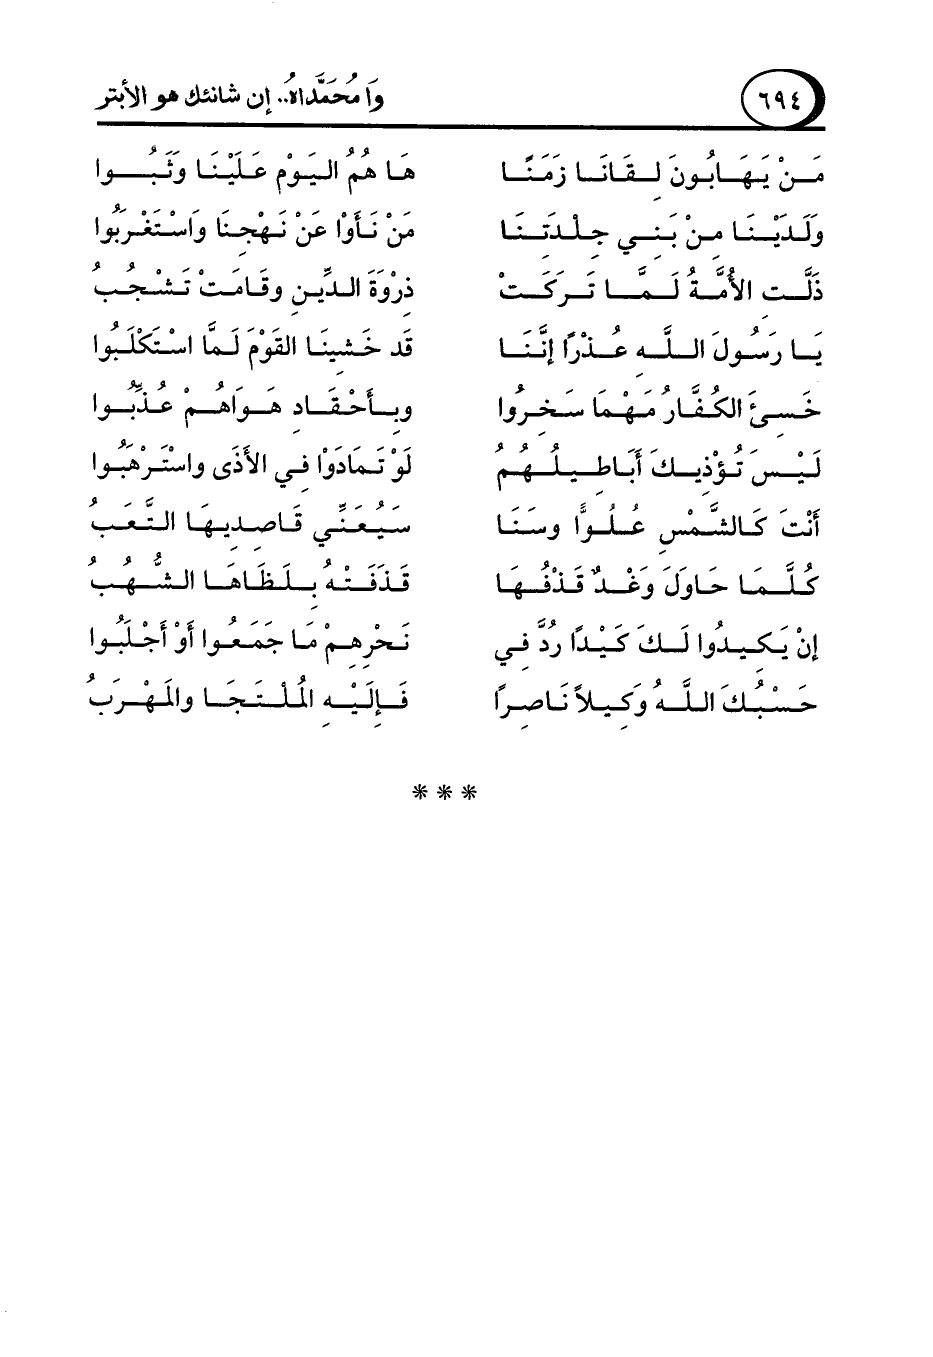 ٦٩٤ وَا مُحَمَّدَاهُ.. إن شانئك هو الأبتر
مَـنْ يَـهَـابُـون لـقَانَـا زَمَـنًـا هَـا هُمُ اليَـوْمِ عَـلَيْنَـا وَثَبُـــوا
وَلَدَيْـنَـا مِـنْ بَـنِـي جِـلْـدَتِـنَـا مَنْ نَـأَوْا عَنْ نَـهْجِنَا وَاسْتَغْرَبُوا
ذَلَّـت الأُمَّـةُ لَـمَّــا تَـرَكَـتْ ذِرْوَةَ الـدِّيـنِ وقَـامَـتْ تَـشْـجُـبُ
يَــا رَسُـولَ الـلَّـهِ عُـذْرًا إنَّـنَـا قَد خَـشِينَـا القَوْمَ لَـمَّا اسْتَكْلَبُوا
خَـسِـئَ الكُـفَّـارُ مَـهْـمَا سَـخِـرُوا وبِـأَحْـقَـادِ هَـوَاهُـمْ عُـذِّبُـوا
لَـيْـسَ تُـؤْذِيـكَ أَبَـاطِـيـلُـهُـمُ لَوْ تَـمَادَوْا فِي الأَذَى واسْتَرْهَبُوا
أَنْتَ كَـالشَّمْسِ عُـلُـوًّا وسَـنَـا سَـيُـعَنِّي قَـاصِدِيـهَـا الـتَّـعَـبُ
كُـلَّـمَـا حَاوَلَ وَغْـدٌ قَـذْفَـهَـا قَـذَفَـتْـهُ بِـلَـظَاهَـا الـشُّـهُـبُ
إنْ يَـكِـيـدُوا لَـكَ كَـيْـدًا رُدَّ فِـي نَـحْرِهِـمْ مَـا جَمَـعُـوا أَوْ أَجْلَبُـوا
حَـسْـبُـكَ الـلَّـهُ وَكِـيـلاً نَـاصِـرًا فَـإلَيْـهِ الْـمُلْـتَـجَـا والمَـهْـرَبُ
* * *